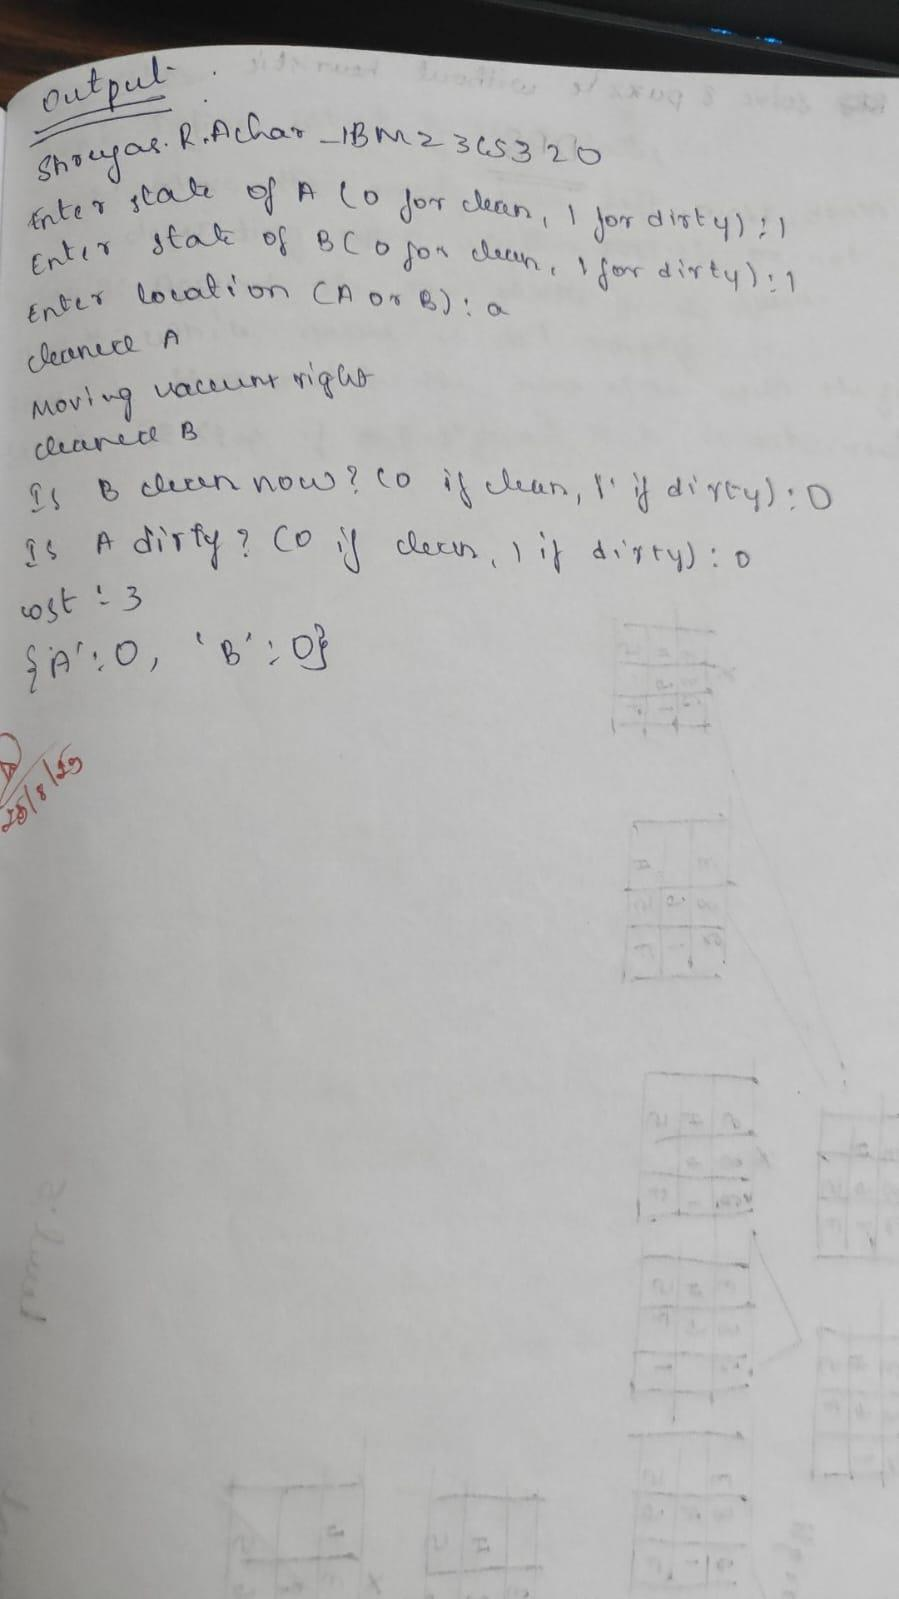 Output
Shreyas.R.Achar _1BM23CS320
Enter state of A (0 for clean, 1 for dirty) : 1
Enter state of B (0 for clean, 1 for dirty) : 1
Enter location (A or B) : a
cleaned A
Moving vacuum right
cleaned B
Is B clean now? (0 if clean, 1 if dirty) : 0
Is A dirty? (0 if clean, 1 if dirty) : 0
cost : 3
{'A' : 0, 'B' : 0}
25/8/25